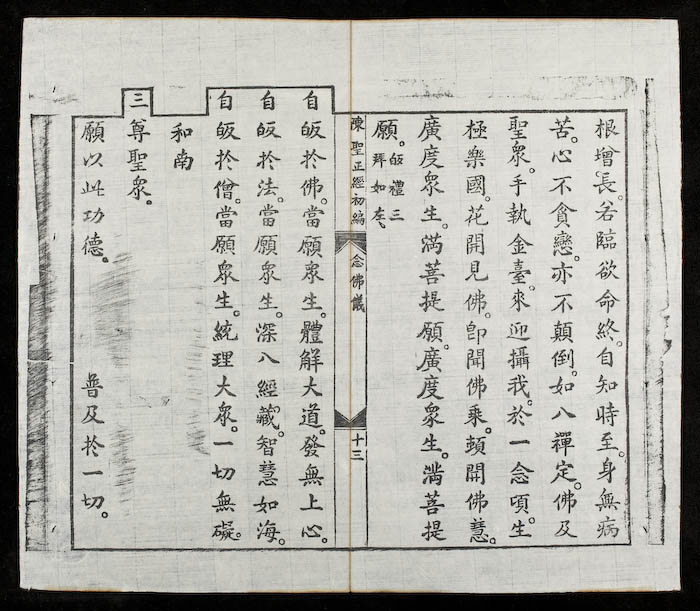 根增長。若臨欲命終。自知時至。身無病
苦。心不貪戀。亦不顛倒。如入禪定。佛及
聖衆。手執金臺。來迎攝我。於一念頃。生
極樂國。花開見佛。卽聞佛乘。頓開佛慧。
廣度衆生。滿菩提願。廣度衆生。滿菩提
願。皈禮三拜如左、
陳聖正經初編 念佛儀 十三
自皈於佛。當願衆生。體解大道。發無上心。
自皈於法。當願衆生。深入經藏。智慧如海。
自皈於僧。當願衆生。統理大衆。一切無礙。
和南
三尊聖衆。
願以此功德。 普及於一切。